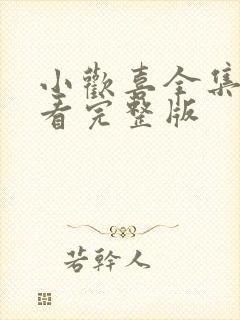 小歡喜全集
看完整版
若幹人